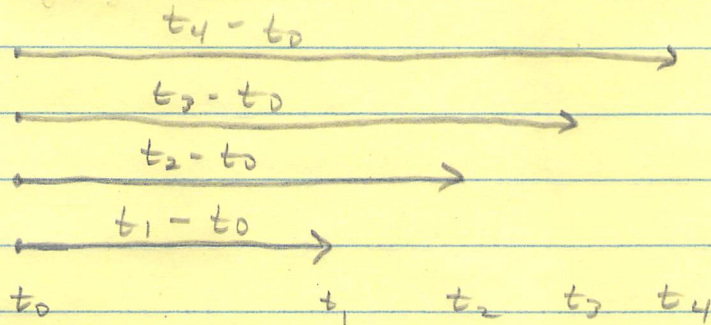 t4 - t0
t3 - t0
t2 - t0
t1 - t0
t0 t1 t2 t3 t4